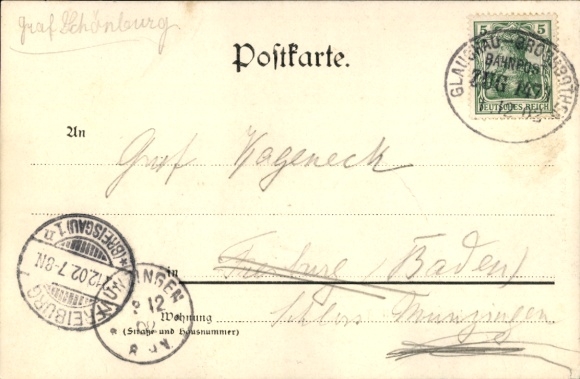 Graf Schönburg
Postkarte.
5 5
DEUTSCHES REICH
GLAUCHAU - GROSSBOTHEN
BAHNPOST
ZUG
12 02
An
Graf Kageneck
in Freiburg (Baden)
Schloss Munzingen
Wohnung
(Straße und Hausnummer)
FREIBURG *(BREISGAU) 1
12.02.7-8N.
MUNZINGEN
12
02